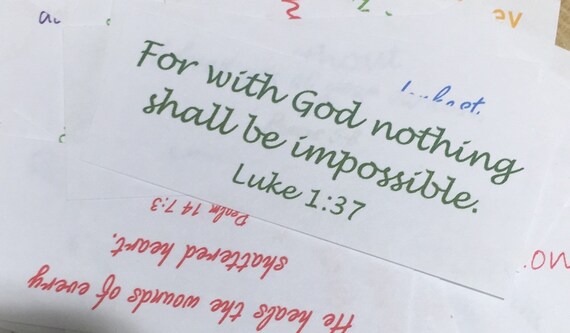 For with God nothing
shall be impossible.
Luke 1:37
He heals the wounds of every
shattered heart.
Psalm 147:3